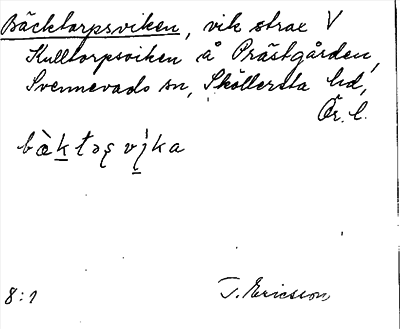 Bäcktorpsviken, vik strax V
Kulltorpsviken å Prästgården,
Svennevads sn, Sköllersta hd,
Ör. l.
8:1
T. Ericsson